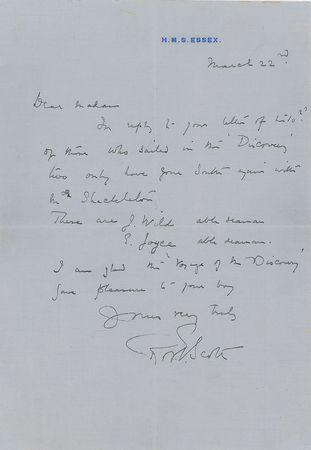 H.M.S. ESSEX.
March 22nd
Dear Madam
In reply to your letter of
of those who sailed in the 'Discovery'
two only have gone South again with
Mr Shackleton
These are J. Wild able seaman
E. Joyce able seaman.
I am glad the 'Voyage of the Discovery'
gave pleasure to your boy
Yours very truly
R. Scott